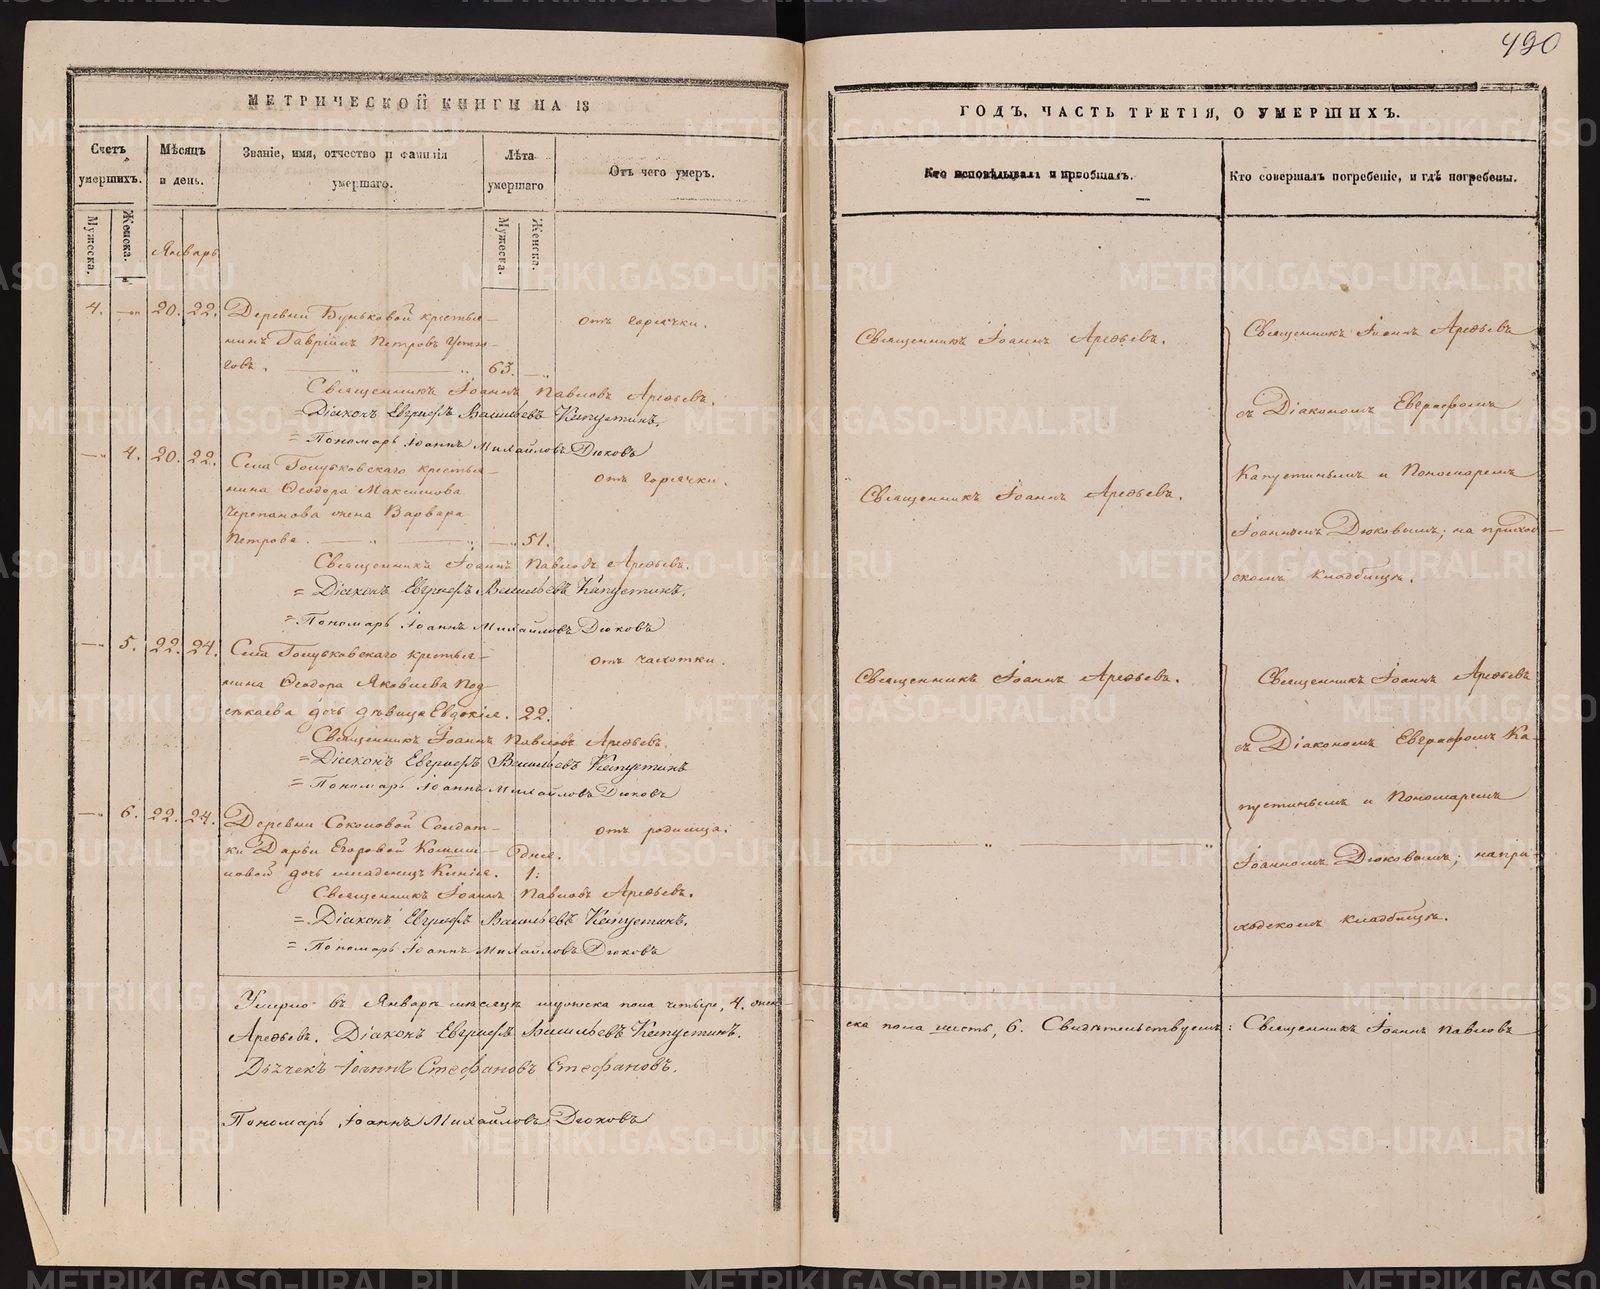 490
МЕТРИЧЕСКОЙ КНИГИ НА 18
ГОДЪ, ЧАСТЬ ТРЕТІЯ, О УМЕРШИХЪ.
Счетъ умершихъ.
Мѣсяцъ и день.
Званіе, имя, отчество и фамилія умершаго.
Лѣта умершаго
Отъ чего умеръ.
Кто исповѣдывалъ и пріобщалъ.
Кто совершалъ погребеніе, и гдѣ погребены.
Мужеска.
Женска.
Мужеска.
Женска.
Январь
4. 20. 22. Деревни Буньковой крестья-
нинъ Гавріилъ Петровъ
говъ. 63.
отъ горячки.
Священникъ Іоаннъ Павловъ Арефьевъ.
= Діаконъ Евграфъ Васильевъ Капустинъ.
= Пономарь Іоаннъ Михайловъ Дюковъ
Священникъ Іоаннъ Арефьевъ.
4. 20. 22. Села Голубковскаго крестья-
нина Ѳеодора Максимова
Черепанова жена Варвара
Петрова. 51.
отъ горячки.
Священникъ Іоаннъ Павловъ Арефьевъ.
= Діаконъ Евграфъ Васильевъ Капустинъ.
= Пономарь Іоаннъ Михайловъ Дюковъ
Священникъ Іоаннъ Арефьевъ.
Священникъ Іоаннъ Арефьевъ
съ Діакономъ Евграфомъ
Капустинымъ и Пономаремъ
Іоанномъ Дюковымъ; на приход-
скомъ кладбищѣ.
5. 22. 24. Села Голубковскаго крестья-
нина Ѳеодора Яковлева Под-
дочь дѣвица Евдокія. 22.
отъ чахотки.
Священникъ Іоаннъ Павловъ Арефьевъ.
= Діаконъ Евграфъ Васильевъ Капустинъ
= Пономарь Іоаннъ Михайловъ Дюковъ
Священникъ Іоаннъ Арефьевъ.
6. 22. 24. Деревни Соколовой Солдат-
ки Дарьи Егоровой
новой дочь младенецъ Ксенія. 1: дня.
отъ родимца.
Священникъ Іоаннъ Павловъ Арефьевъ.
= Діаконъ Евграфъ Васильевъ Капустинъ.
= Пономарь Іоаннъ Михайловъ Дюковъ
Священникъ Іоаннъ Арефьевъ
съ Діакономъ Евграфомъ Ка-
пустинымъ и Пономаремъ
Іоанномъ Дюковымъ; на при-
ходскомъ кладбищѣ.
Умерло въ Январѣ мѣсяцѣ мужеска пола четыре, 4. жен-
ска пола шесть, 6. Свидѣтельствуемъ: Священникъ Іоаннъ Павловъ
Арефьевъ. Діаконъ Евграфъ Васильевъ Капустинъ.
Дьячекъ Іоаннъ Стефановъ Стефановъ.
Пономарь Іоаннъ Михайловъ Дюковъ
METRIKI.GASO-URAL.RU